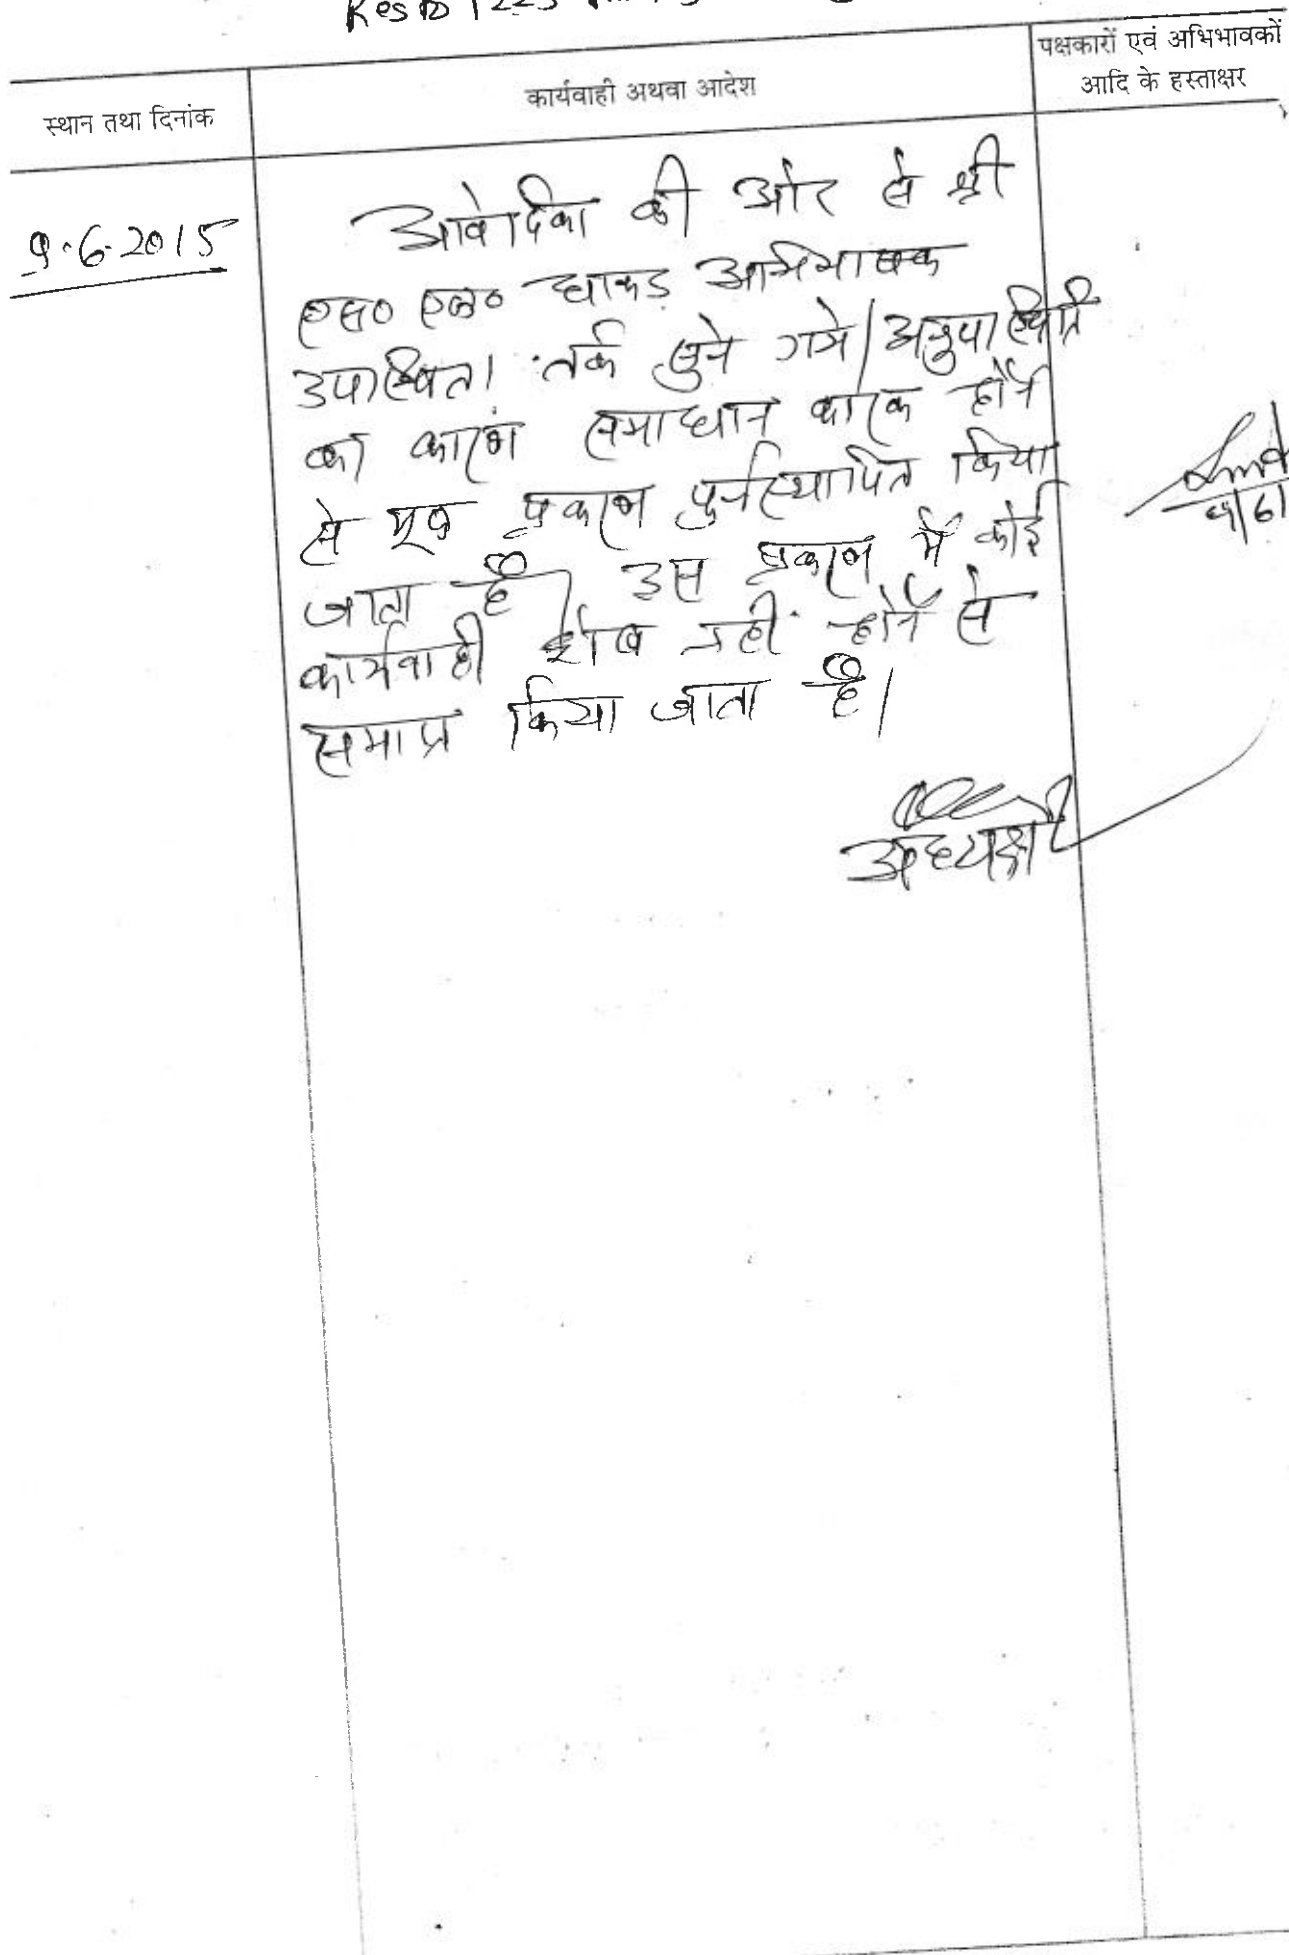 स्थान तथा दिनांक
कार्यवाही अथवा आदेश
पक्षकारों एवं अभिभावकों
आदि के हस्ताक्षर
9.6.2015
आवेदिका की ओर से श्री
एस० एल० धाकड़ अभिभाषक
उपस्थित। तर्क सुने गये। अनुपस्थिति
का कारण समाधान कारक होने
से मूल प्रकरण पुर्नस्थापित किया
जाता है। उस प्रकरण में कोई
कार्यवाही शेष नहीं होने से
समाप्त किया जाता है।
अध्यक्ष